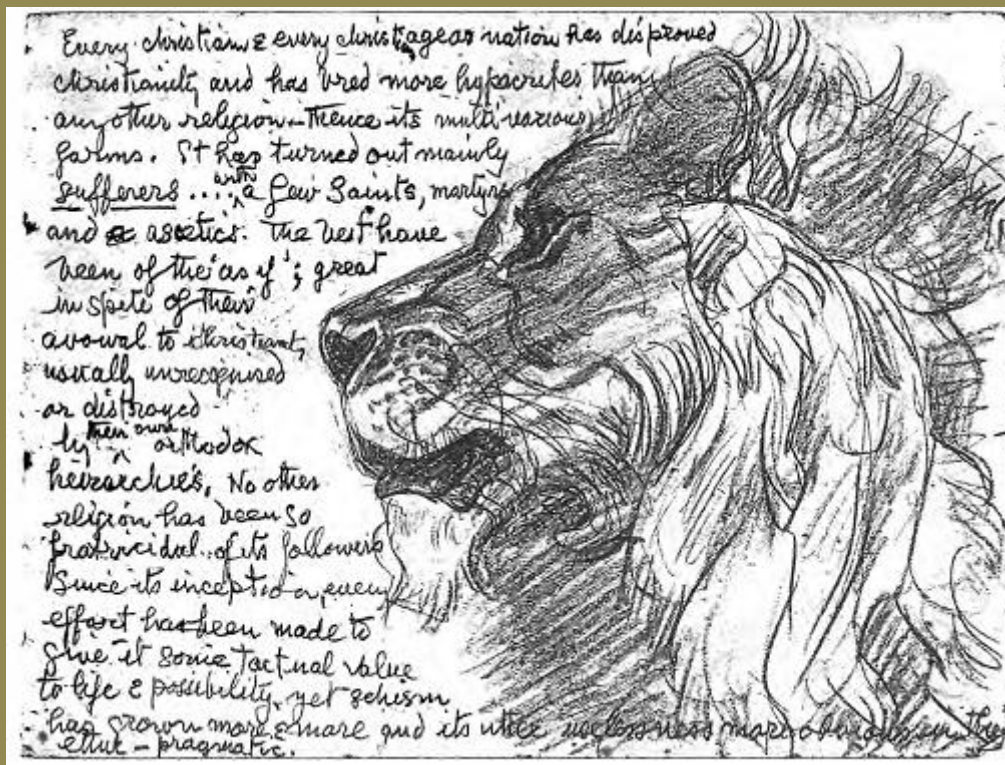 Every christian & every christ nation has disproved
christianity and has bred more hypocrites than
any other religion — thence its multi-various
forms. It has turned out mainly
sufferers .... with a few Saints, martyrs
and ascetics. The best have
been of the 'as if'; great
in spite of their
avowal to christianity,
usually unrecognised
or distroyed
by their own orthodox
heirarchies, No other
religion has been so
fratricidal of its followers
Since its inception, every
effort has been made to
give it some factual value
to life & possibility, yet schism
has grown more & more and its utter uselessness more obvious in
ethic - pragmatic.